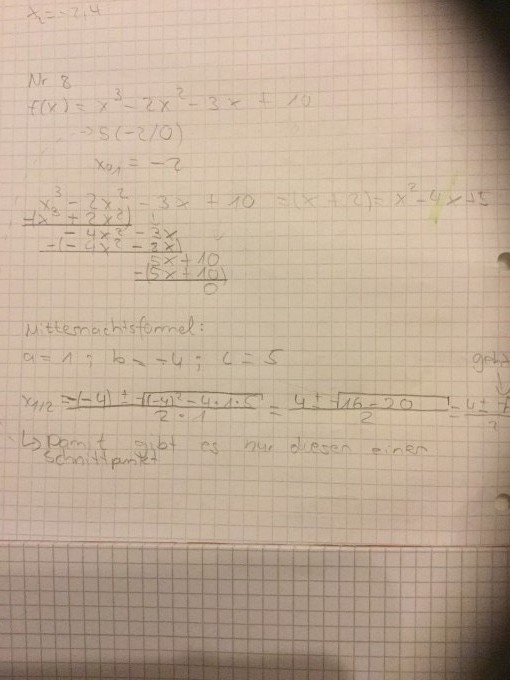 x₂ = -2,4
Nr 8
f(x) = x³ - 2x² - 3x + 10
→ S(-2/0)
x₀₁ = -2
x³ - 2x² - 3x + 10 = (x + 2) = x² - 4x + 5
-(x³ + 2x²)
- 4x² - 3x
-(- 4x² - 8x)
5x + 10
-(5x + 10)
0
Mitternachtsformel:
a = 1 ; b = -4 ; c = 5
x₁/₂ = -(-4) ± √((-4)² - 4·1·5) / 2·1 = 4 ± √(16 - 20) / 2 = 4 ±
↳ Damit gibt es nur diesen einen
Schnittpunkt